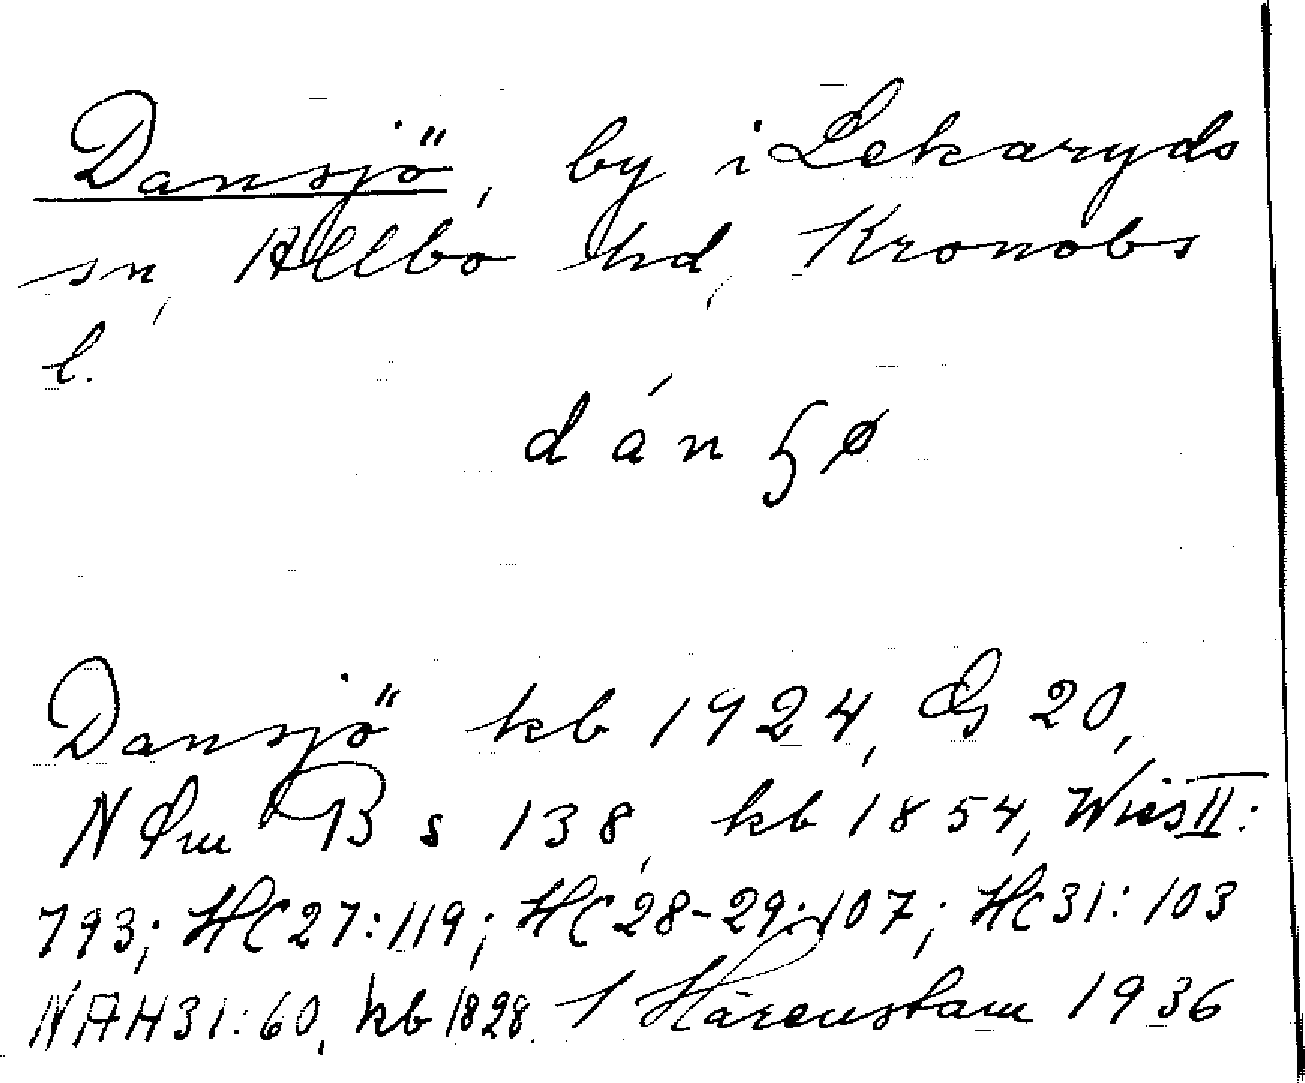 Dansjö, by i Lekaryds
sn, Allbo hd, Kronobs
l.
dánɧø
Dansjö kb 1924, G 20,
N B s 138, kb 1854, Wies II:
793; HC27:119; HC28-29:107; HC31:103
NAH31:60, kb 1828. J Härenstam 1936